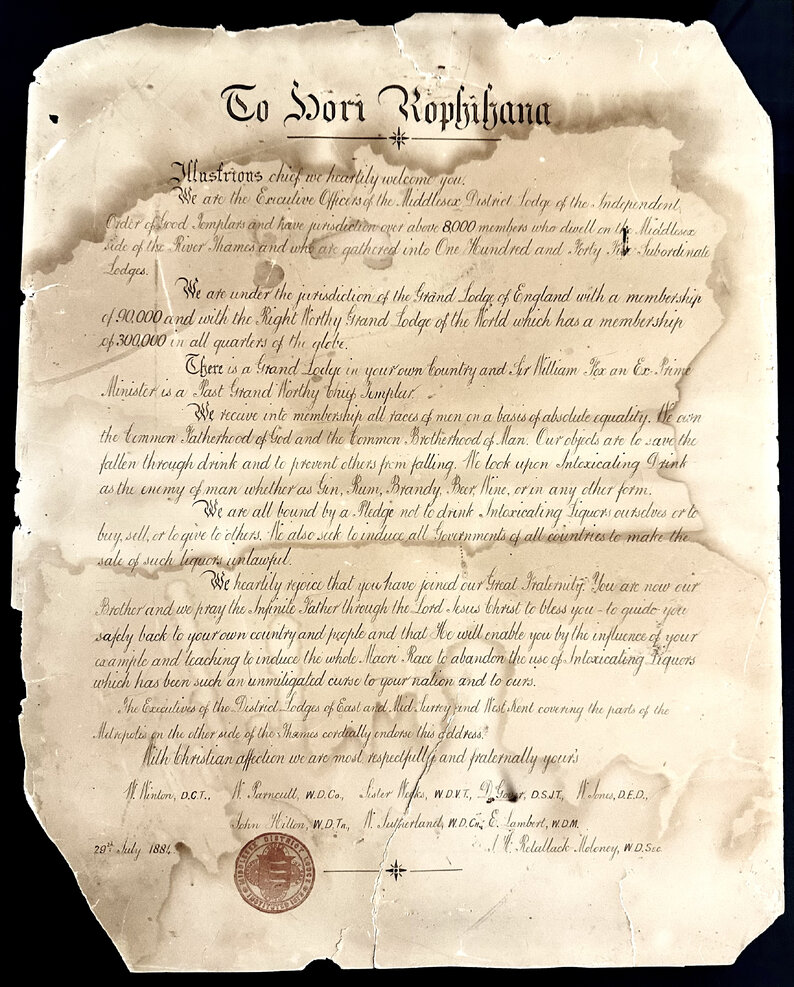 To Hori Rophihana
Illustrious chief we heartily welcome you.
We are the Executive Officers of the Middlesex District Lodge of the Independent
Order of Good Templars and have jurisdiction over above 8,000 members who dwell on the Middlesex
side of the River Thames and who are gathered into One Hundred and Forty Subordinate
Lodges.
We are under the jurisdiction of the Grand Lodge of England with a membership
of 90,000 and with the Right Worthy Grand Lodge of the World which has a membership
of 300,000 in all quarters of the globe.
There is a Grand Lodge in your own Country and Sir William Fox an Ex-Prime
Minister is a Past Grand Worthy Chief Templar.
We receive into membership all races of men on a basis of absolute equality. We own
the Common Fatherhood of God and the Common Brotherhood of Man. Our objects are to save the
fallen through drink and to prevent others from falling. We look upon Intoxicating Drink
as the enemy of man whether as Gin, Rum, Brandy, Beer, Wine, or in any other form.
We are all bound by a Pledge not to drink Intoxicating Liquors ourselves or to
buy, sell, or to give to others. We also seek to induce all Governments of all countries to make the
sale of such liquors unlawful.
We heartily rejoice that you have joined our Great Fraternity. You are now our
Brother and we pray the Infinite Father through the Lord Jesus Christ to bless you - to guide you
safely back to your own country and people and that He will enable you by the influence of your
example and teaching to induce the whole Maori Race to abandon the use of Intoxicating Liquors
which has been such an unmitigated curse to your nation and to ours.
The Executives of the District Lodges of East and Mid Surrey and West Kent covering the parts of the
Metropolis on the other side of the Thames cordially endorse this address.
With Christian affection we are most respectfully and fraternally yours
W. Winton, D.C.T., W. Parncutt, W.D.Co., Sister Weeks, W.D.V.T., D. Gover, D.S.J.T., W. Jones, D.E.D.,
John Hilton, W.D.Tr., W. Sutherland, W.D.Cn., E. Lambert, W.D.M.
29th July 188 J. H. Retallack Moloney, W.D.Sec.
MIDDLESEX DISTRICT LODGE